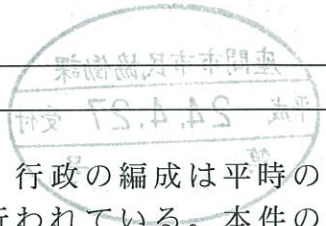 座間市市民協働課
平成 24.4.27 受付
第 号
行政の編成は平時の
行われている。本件の